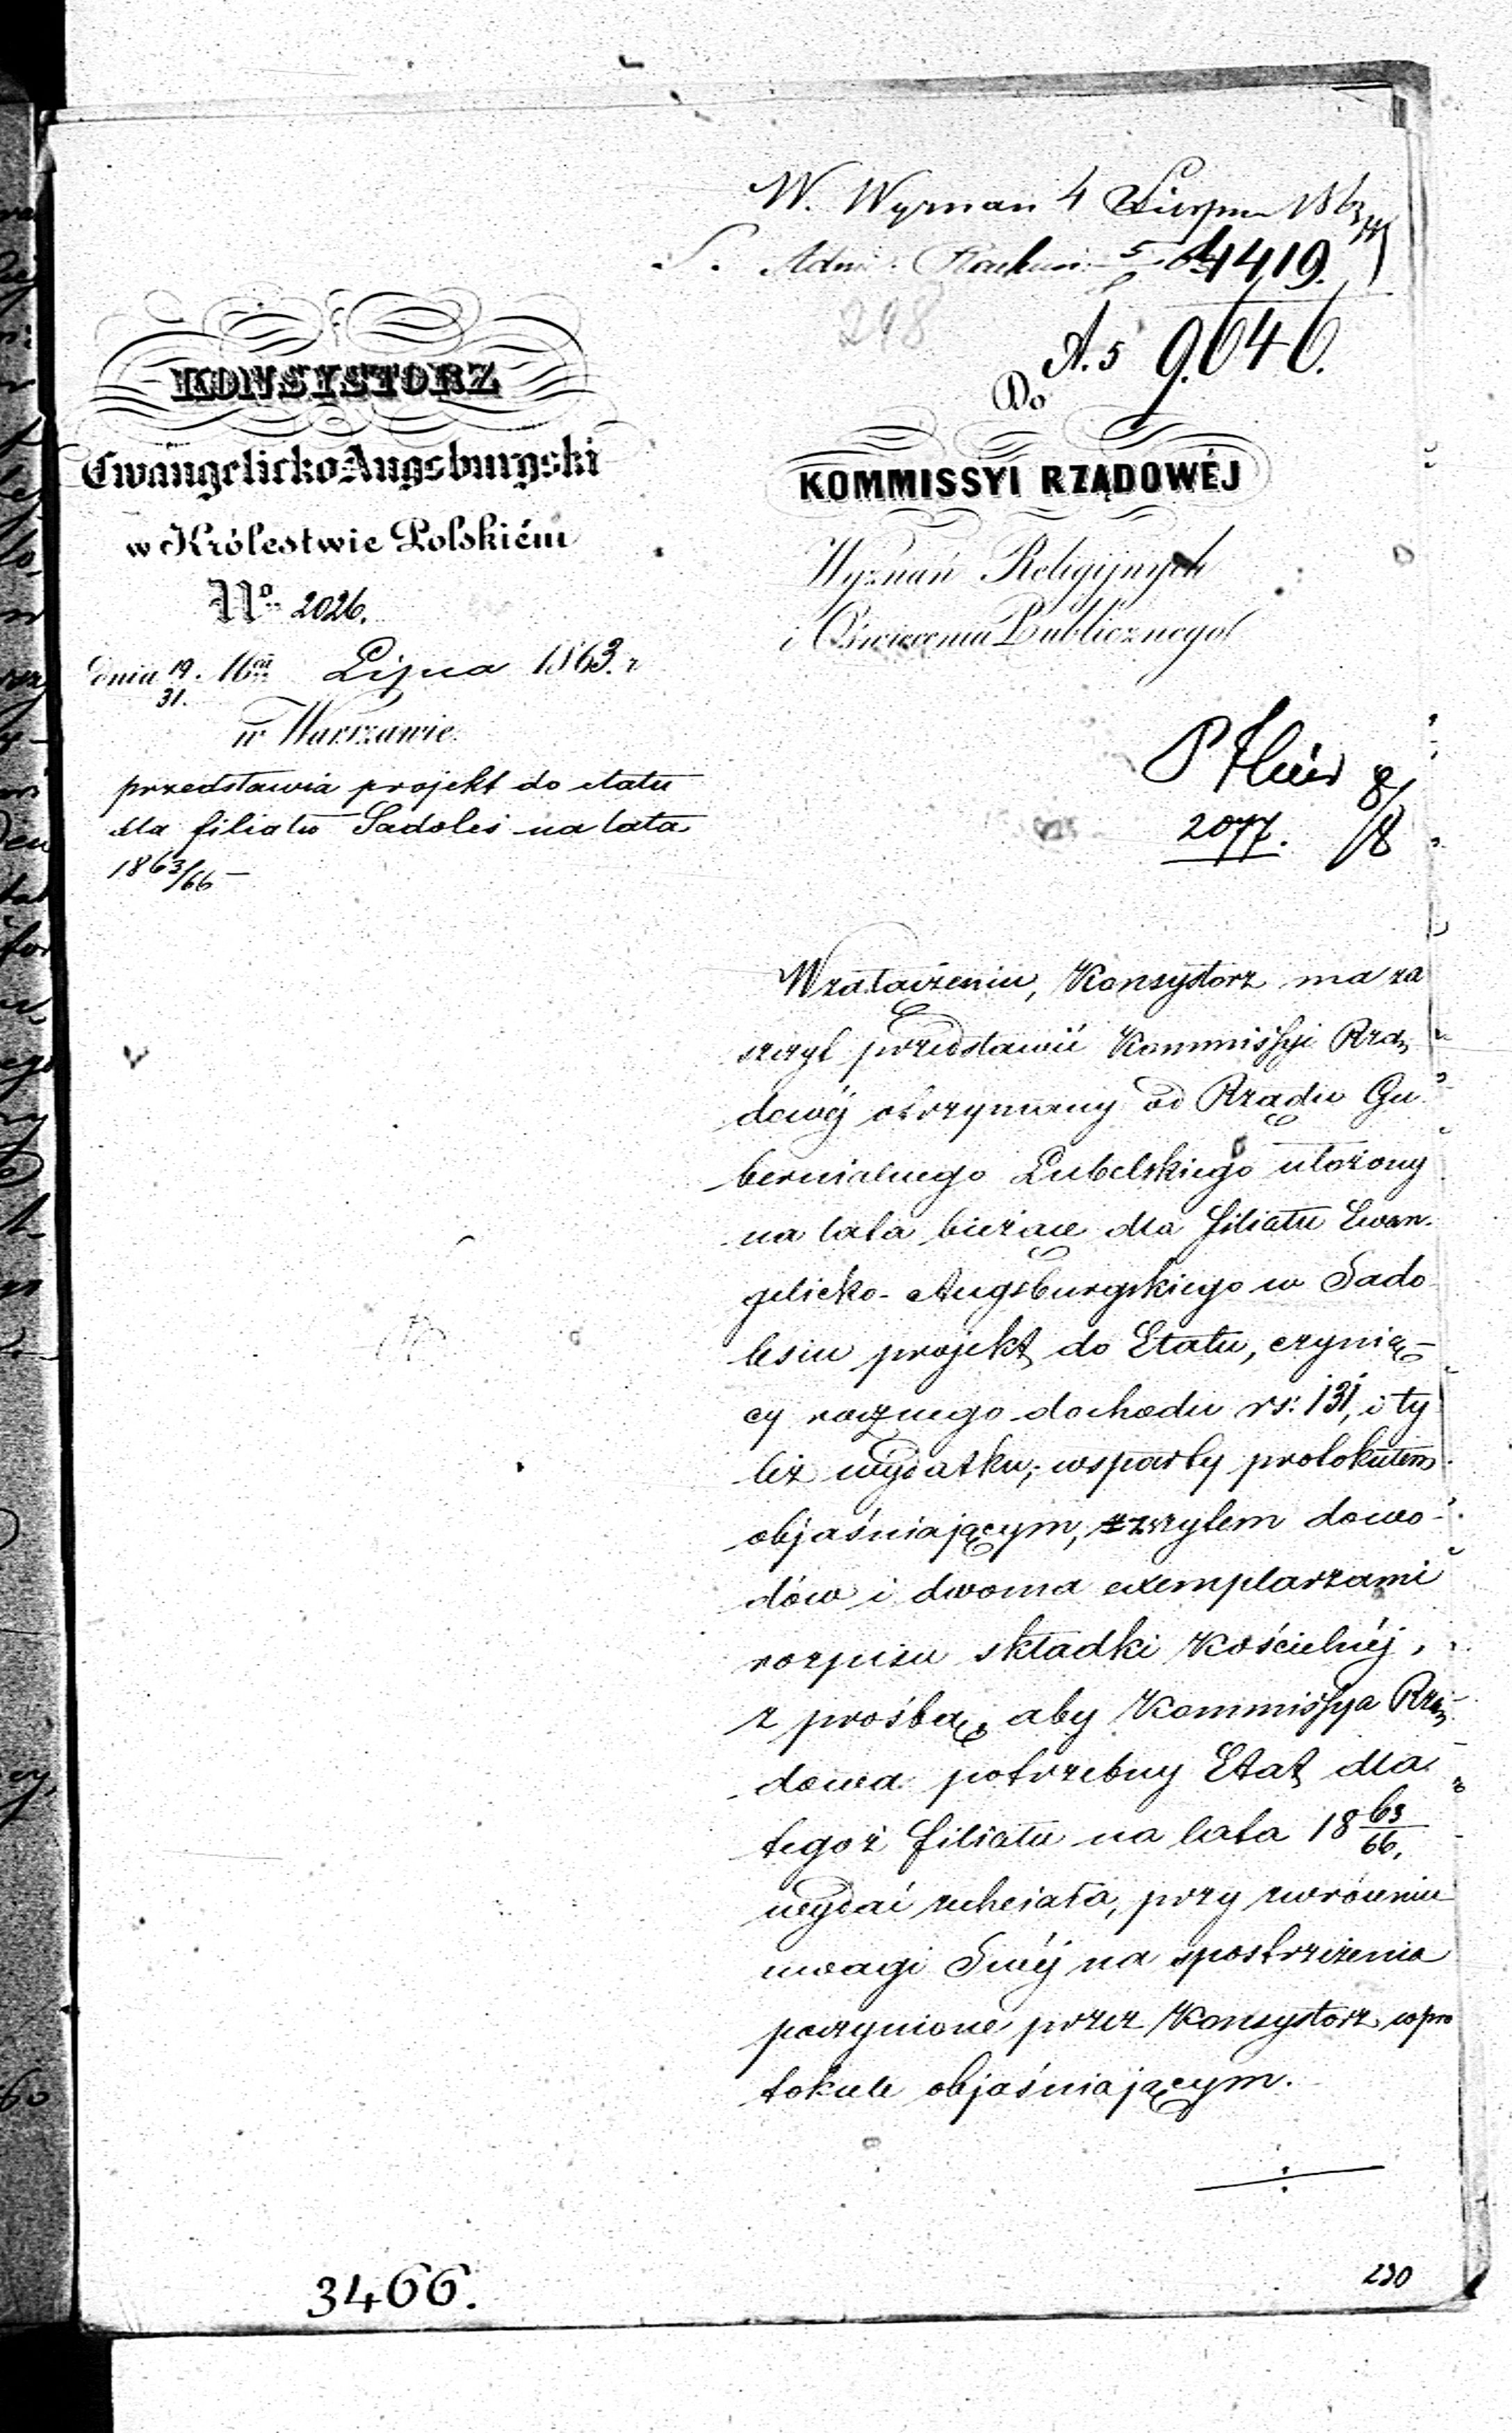 W. Wyznań 4 Sierpn 1863
S. Adm: Rachun: 5 4419.
298
A. 5 9646.
KONSYSTORZ
Ewangelicko-Augsburgski
w Królestwie Polskiém
No 2026.
dnia 19/31. 16m Lipca 1863. r
w Warszawie.
przedstawia projekt do etatu
dla filiału Sadoleś na lata
1863/66
Do
KOMMISSYI RZĄDOWÉJ
Wyznań Religijnych
i Oświecenia Publicznego
P
8/8
2077.
W załączeniu, Konsystorz ma za
szczyt przedstawić Kommissyi Rzą
dowéj otrzymany od Rządu Gu
bernialnego Lubelskiego ułożony
na lata bieżące dla filiału Ewan-
gelicko-Augsburgskiego w Sado
lesiu projekt do Etatu, czynią-
cy rocznego dochodu rs: 131, i ty
leż wydatku; wsparty protokułem
objaśniającym, zszytem dowo-
dów i dwoma exemplarzami
rozpisu składki kościelnéj,
z prośbą, aby Kommissya Rzą
dowa potrzebny Etat dla
tegoż filiału na lata 18 63/66,
wydać zechciała, przy zwróceniu
uwagi Swéj na spostrzeżenia
poczynione przez Konsystorz w pro
tokule objaśniającym.
3466.
230